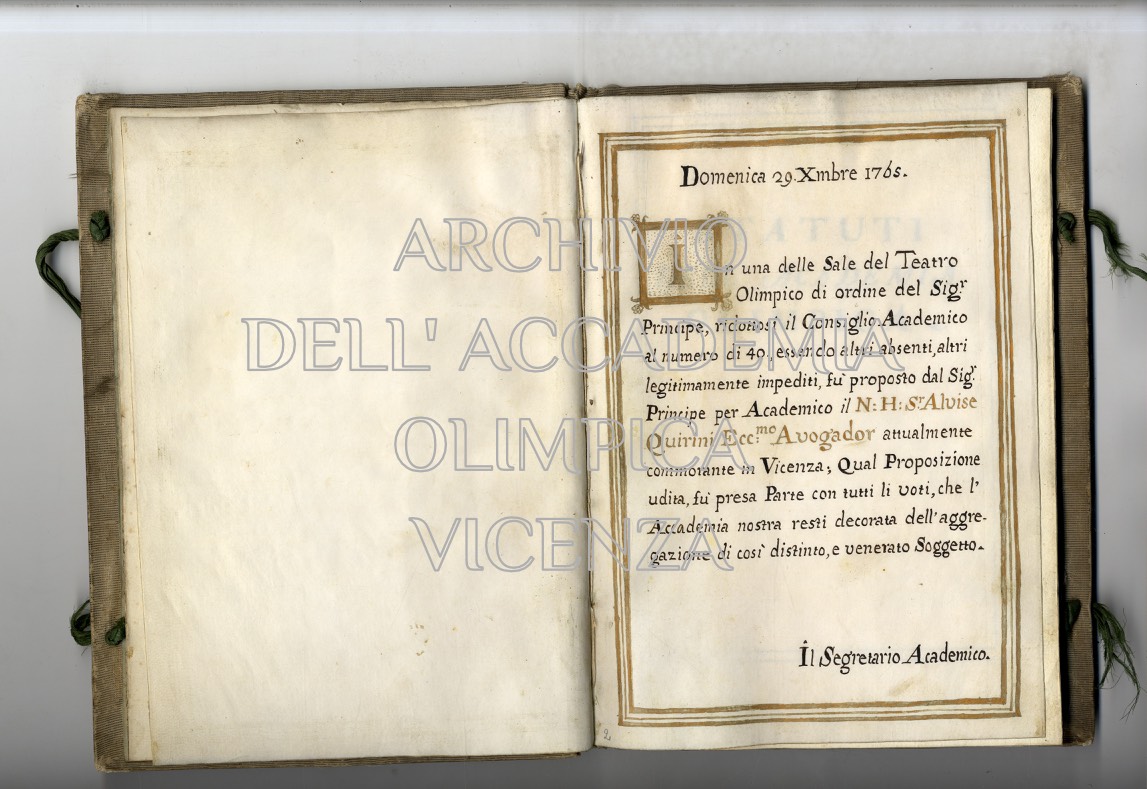 Domenica 29. Xmbre 1765.
In una delle Sale del Teatro
Olimpico di ordine del Sigr
Principe, ridottosi il Consiglio Academico
al numero di 40, essendo altri absenti, altri
legitimamente impediti, fu' proposto dal Sigr.
Principe per Academico il N: H: Sr. Alvise
Quirini Ecc:mo Avogador attualmente
commorante in Vicenza; Qual Proposizione
udita, fu' presa Parte con tutti li voti, che l'
Accademia nostra resti decorata dell'aggre-
gazione di così distinto, e venerato Soggetto.
Il Segretario Academico.
2
STATUTI
ARCHIVIO
DELL' ACCADEMIA
OLIMPICA
VICENZA